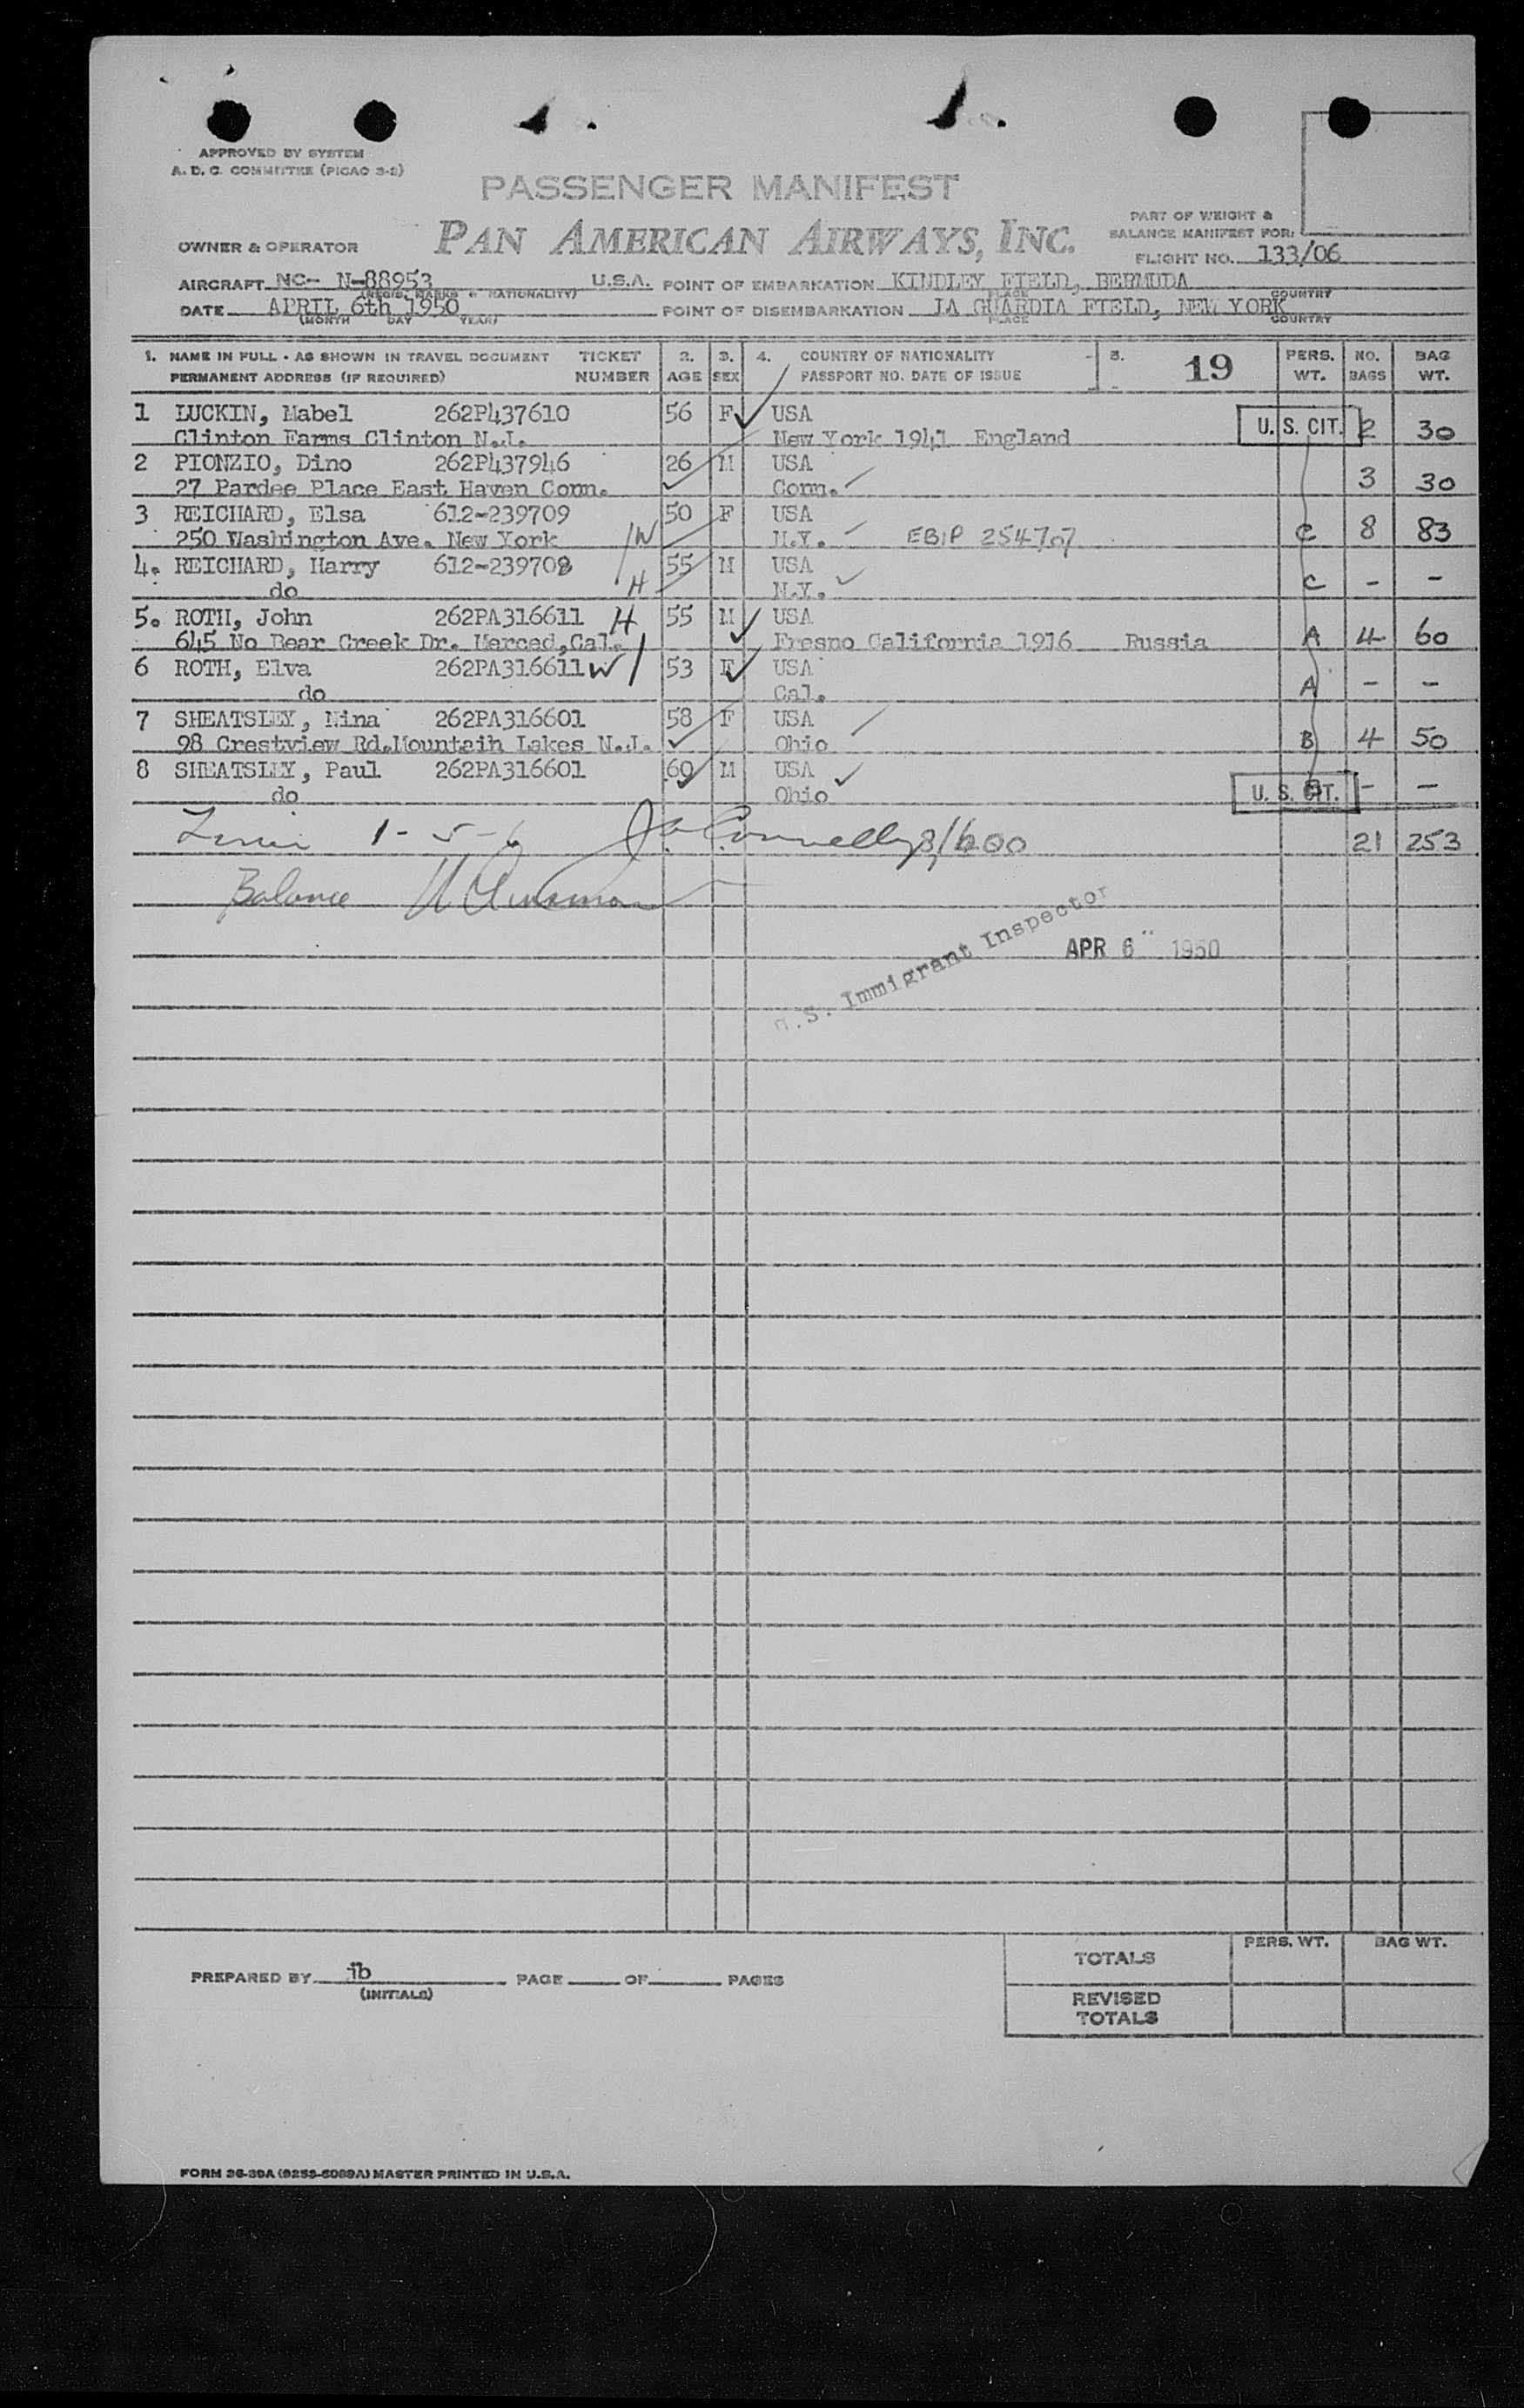 APPROVED BY SYSTEM
A. D. C. COMMITTEE (PICAO 3-2)
PASSENGER MANIFEST
OWNER & OPERATOR PAN AMERICAN AIRWAYS, INC.
PART OF WEIGHT &
BALANCE MANIFEST FOR:
FLIGHT NO. 133/06
AIRCRAFT NC- N-88953 U.S.A. POINT OF EMBARKATION KINDLEY FIELD, BERMUDA
(REGIS. MARKS & NATIONALITY) PLACE COUNTRY
DATE APRIL 6th 1950 POINT OF DISEMBARKATION LA GUARDIA FIELD, NEW YORK
(MONTH DAY YEAR) PLACE COUNTRY
1. NAME IN FULL - AS SHOWN IN TRAVEL DOCUMENT TICKET 2. 3. 4. COUNTRY OF NATIONALITY 5. 19 PERS. NO. BAG
PERMANENT ADDRESS (IF REQUIRED) NUMBER AGE SEX PASSPORT NO. DATE OF ISSUE WT. BAGS WT.
1 LUCKIN, Mabel 262P437610 56 F USA U. S. CIT. 2 30
Clinton Farms Clinton N.J. New York 1941 England
2 PIONZIO, Dino 262P437946 26 M USA 3 30
27 Pardee Place East Haven Conn. Conn.
3 REICHARD, Elsa 612-239709 50 F USA 8 83
250 Washington Ave. New York W N.Y. EBIP 254707 C
4. REICHARD, Harry 612-239708 55 M USA C - -
do H N.Y.
5. ROTH, John 262PA316611 H 55 M USA
645 No Bear Creek Dr. Merced,Cal. Fresno California 1916 Russia A 4 60
6 ROTH, Elva 262PA316611 W 53 F USA
do Cal. A - -
7 SHEATSLEY, Nina 262PA316601 58 F USA
98 Crestview Rd.Mountain Lakes N.J. Ohio B 4 50
8 SHEATSLEY, Paul 262PA316601 60 M USA
do Ohio U. S. CIT. B - -
1-5-6 Connelly 8/1600 21 253
Balance
U.S. Immigrant Inspector
APR 6 1950
TOTALS PERS. WT. BAG WT.
PREPARED BY jb PAGE OF PAGES
(INITIALS)
REVISED
TOTALS
FORM 26-39A (9253-6089A) MASTER PRINTED IN U.S.A.